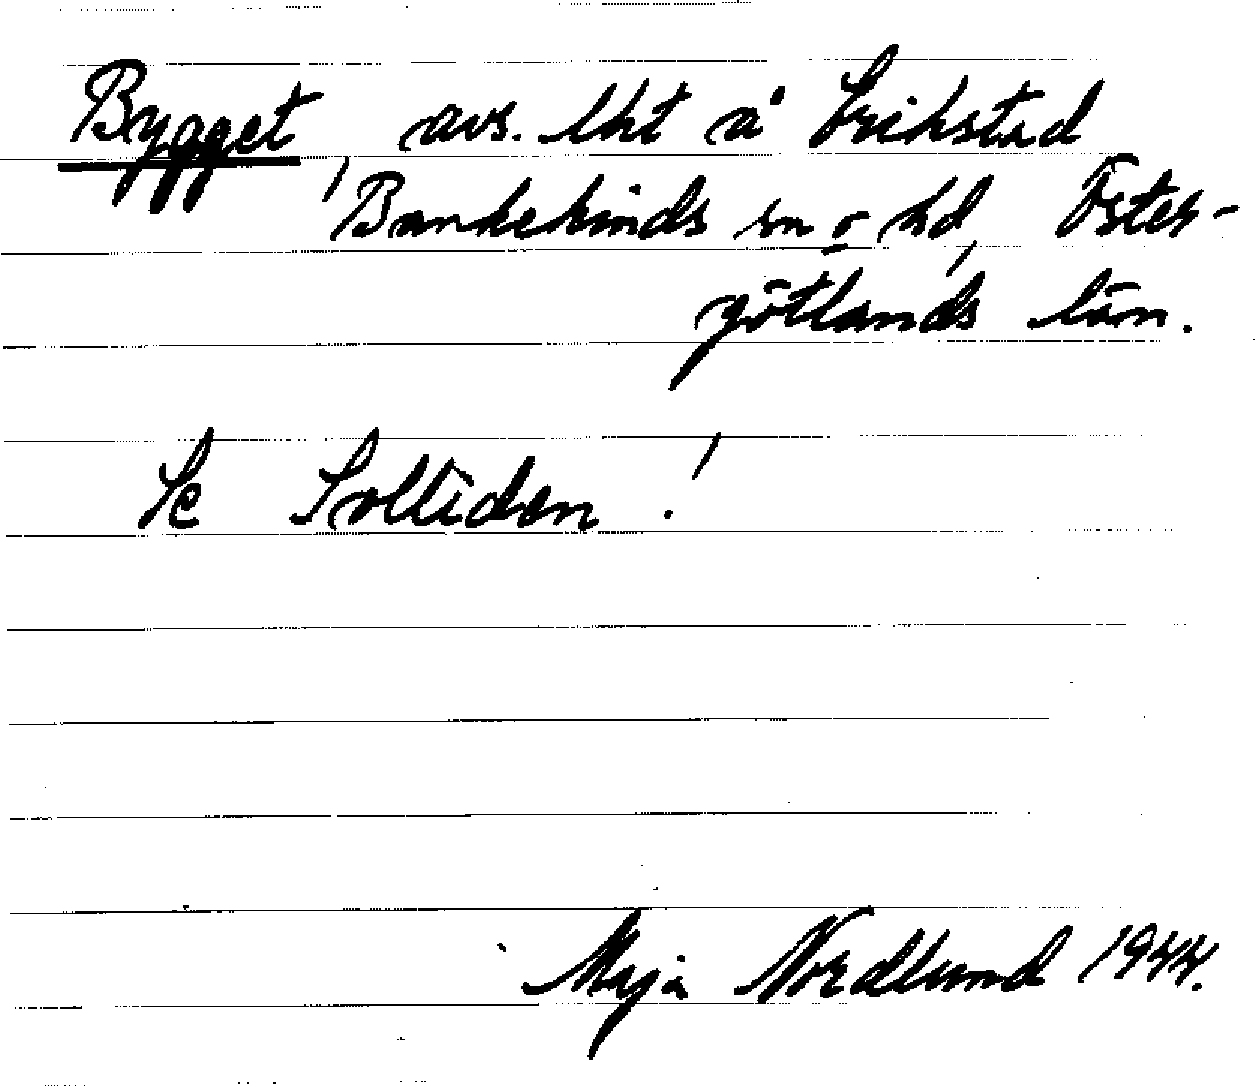 Bygget, avs. lht å Erikstad
Bankekinds sn o hd, Öster-
götlands län.
Se Solliden!
Maja Nordlund 1944.